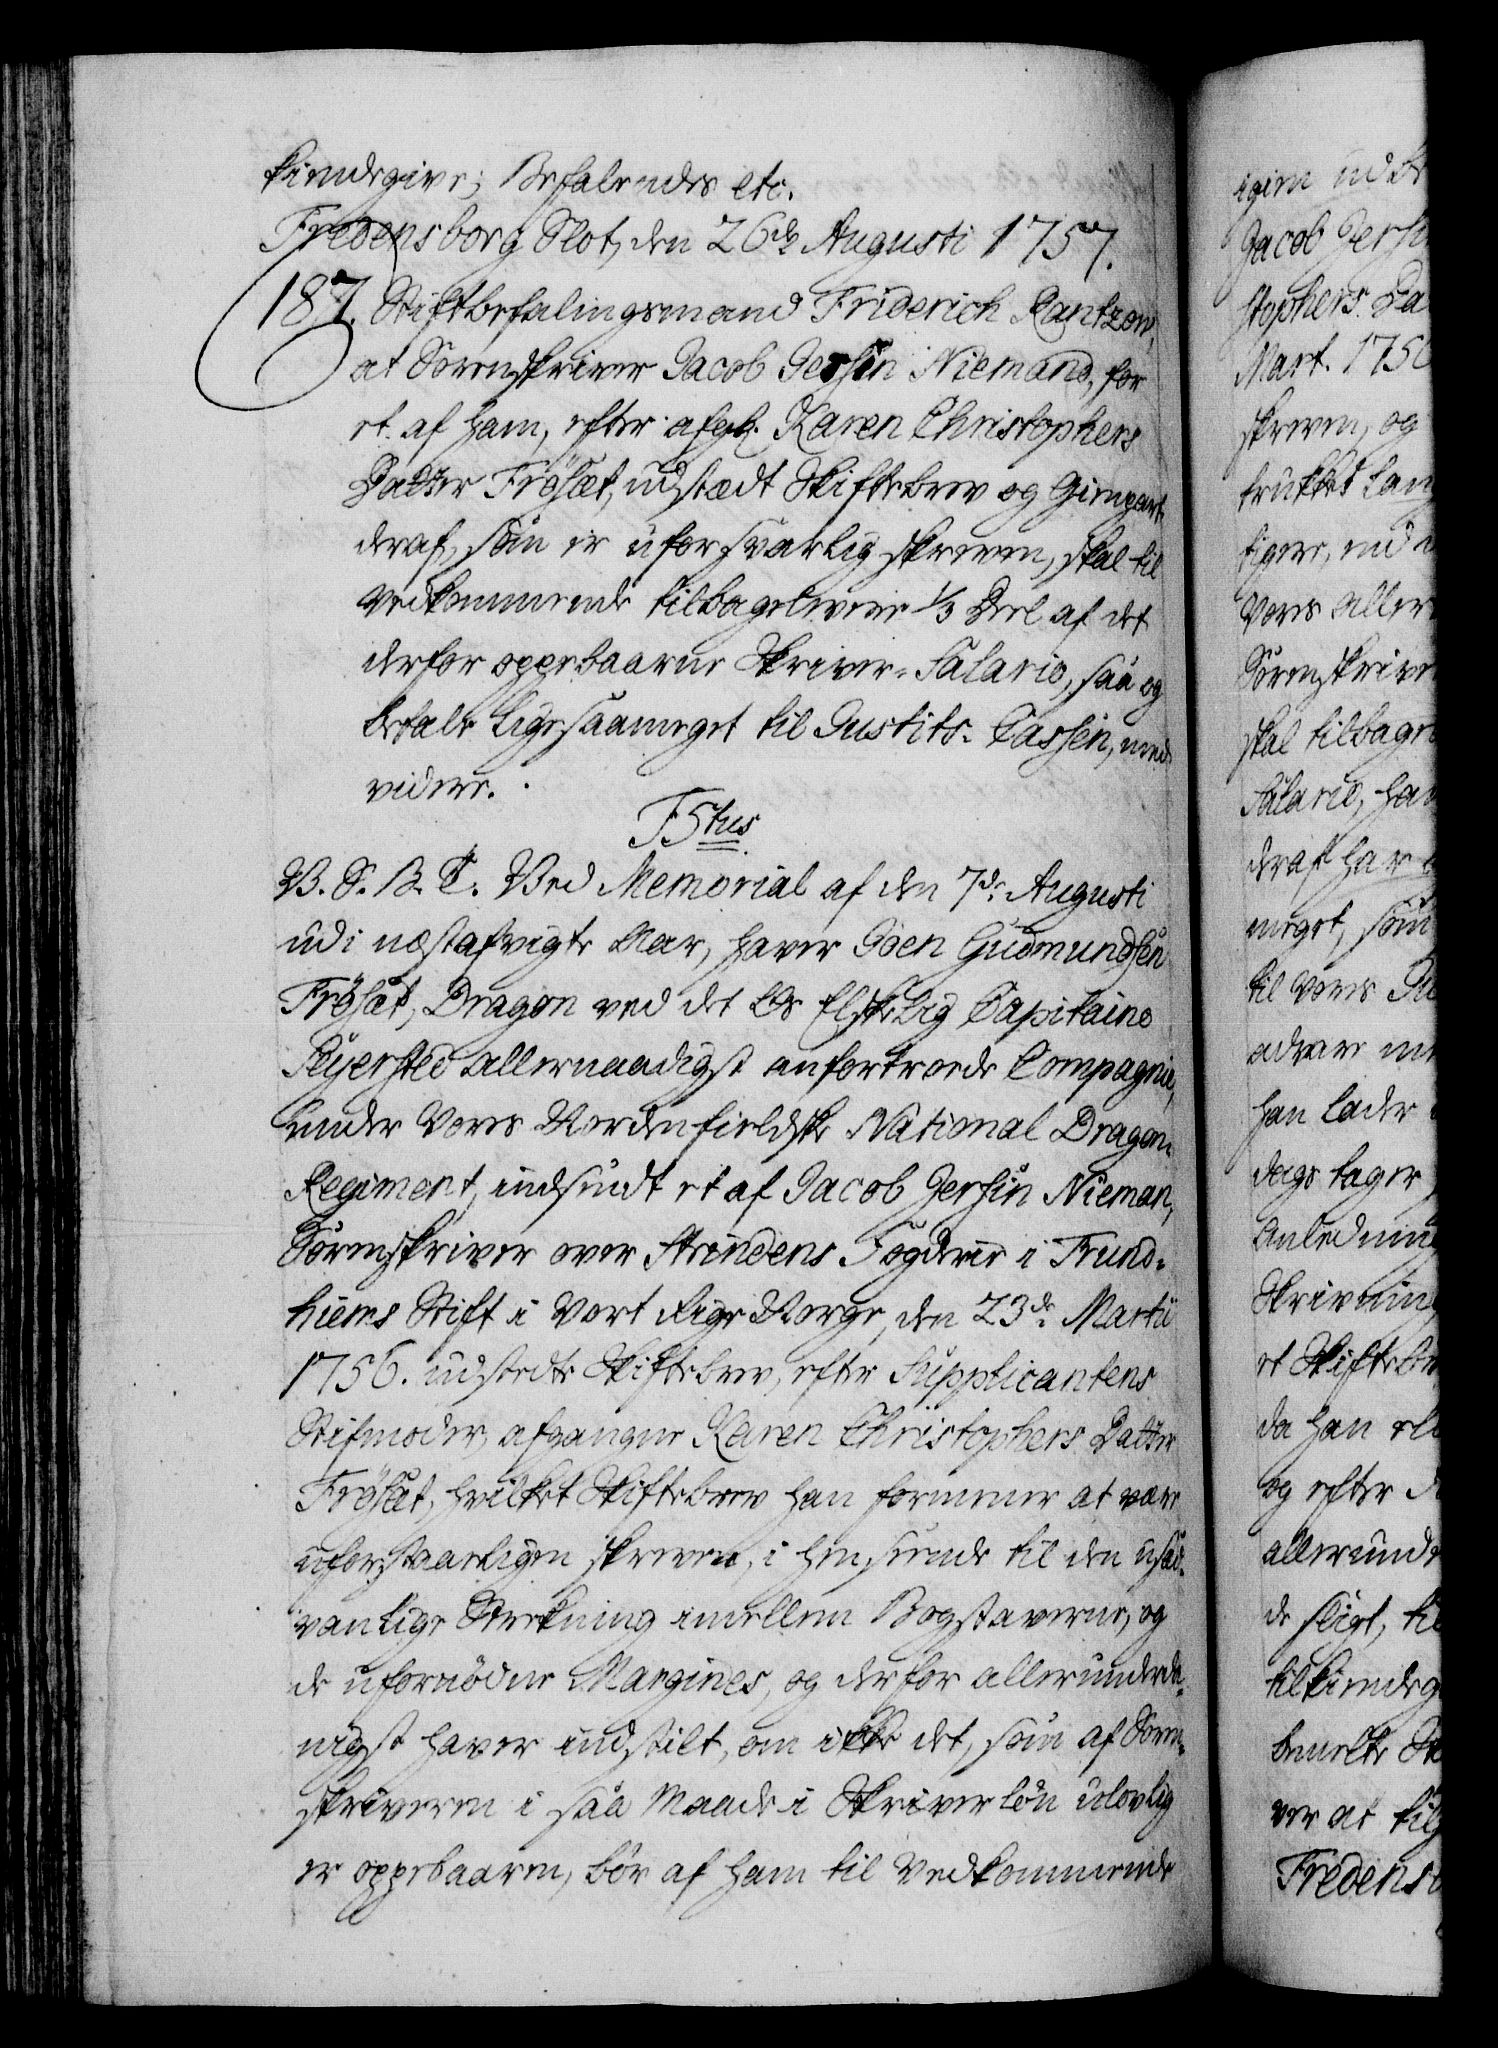 kiendegive; Befalendes etc.
Fredensborg Slot, den 26de Augusti 1757.
187. Stiftbefalingsmand Friderich Rantzow,
at Sorenskriver Jacob Jersin Niemand, for
et af ham, efter afgl. Karen Christophers
Datter Frøsæt, udstædt Skiftebrev og Gienpart
deraf, som er uforsvarlig skreven, skal til
Vedkommende tilbagelevere 1/3 Deel af det
derfor oppebaarne Skriver-Salario, saa og
betale ligesaameget til Justits-Cassen, med
videre.
F5tus
V. G. B. T. Ved Memorial af den 7de Augusti
udi næstafvigte Aar, haver Joen Gudmundsen
Frøsæt, Dragon ved det Os Elskelig Capitaine
Peÿersted allernaadigst anfortroede Compagnie,
under Vores Nordenfieldske National Dragon-
Regiment, indsendt et af Jacob Jersin Nieman,
Sorenskriver over Strindens Fogderie i Trund-
hiems Stift i Vort Rige Norge, den 23de Martii
1756. udstedte Skiftebrev, efter Supplicantens
Stifmoder, afgangne Karen Christophers Datter
Frøsæt, hvilket Skiftebrev han formener at være
uforsvarligen skreven, i henseende til den usæd-
vanlige Strekning imellem Bogstaverne, og
de ufornødne Margines, og derfor allerunderda-
nigst haver indstilt, om ikke det, som af Soren-
skriveren i saa Maade i Skriverløn ulovlig
er oppebaaren, bør af ham til Vedkommende
igien udbe
Jacob Jersin
stophers Da
Mart. 1756
skreven, og
trukket lang
tigere, end
Vores aller
Sorenskrive
skal tilbage
Salario, ha
deraf har
meget, som
til Vores Ju
advare
han lader
dags tager
Anledning
Skrivning
et Skiftebr
da han
og efter
allerunde
de sligt, til
tilkiendeg
bemelte
ver at til
Fredensb